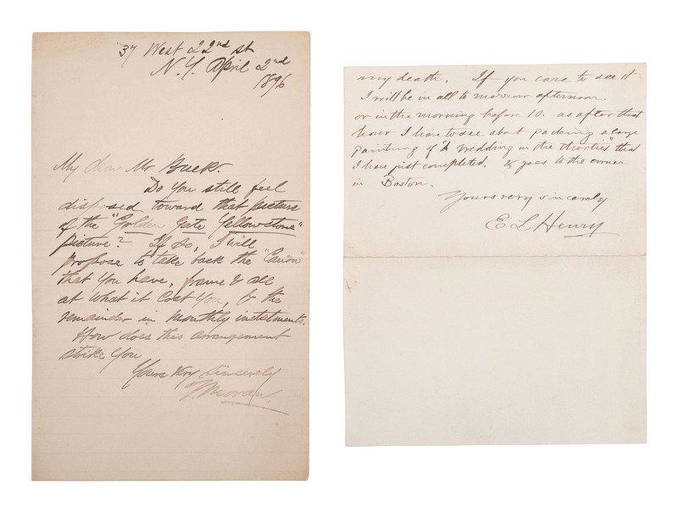 37 West 22nd st
N.Y. April 2nd
1896
My dear Mr Buck.
Do You still feel
disposed toward that picture
of the "Golden Gate Yellowstone"
picture? If So, I will
propose to take back the "Cañon"
that You have, frame & all
at what it Cost You, & the
remainder in monthly instalments.
How does this arrangement
strike You
Yours Very Sincerely
T. Moran.
my death. If you care to see it
I will be in all to morrow afternoon.
or in the morning before 10. as after that
hour I have to see about packing a large
painting of "A Wedding in the thirties" that
I have just completed, & goes to the owner
in Boston.
Yours very sincerely
E L Henry